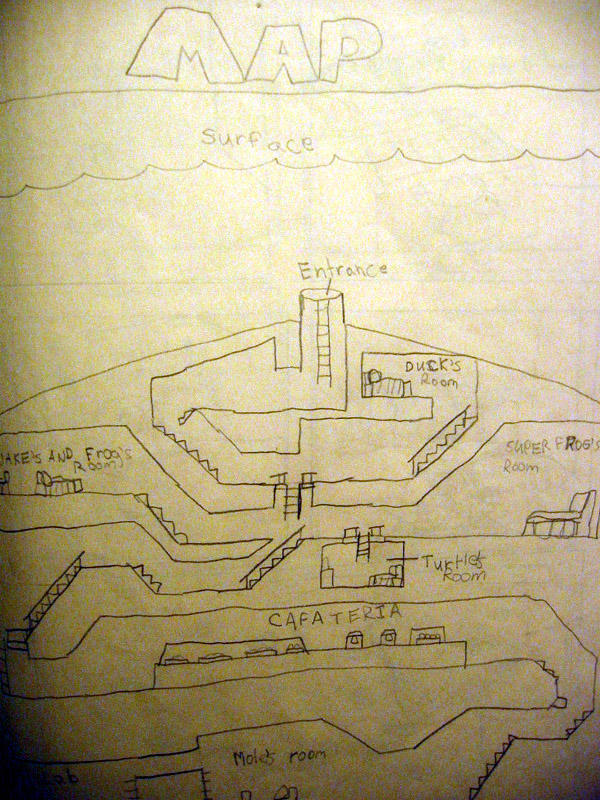 MAP
surface
Entrance
DUCK'S
Room
NAKE'S AND Frog's
Room
SUPER FROG'S
Room
Turtle's
Room
CAFATERIA
Mole's room
Lab